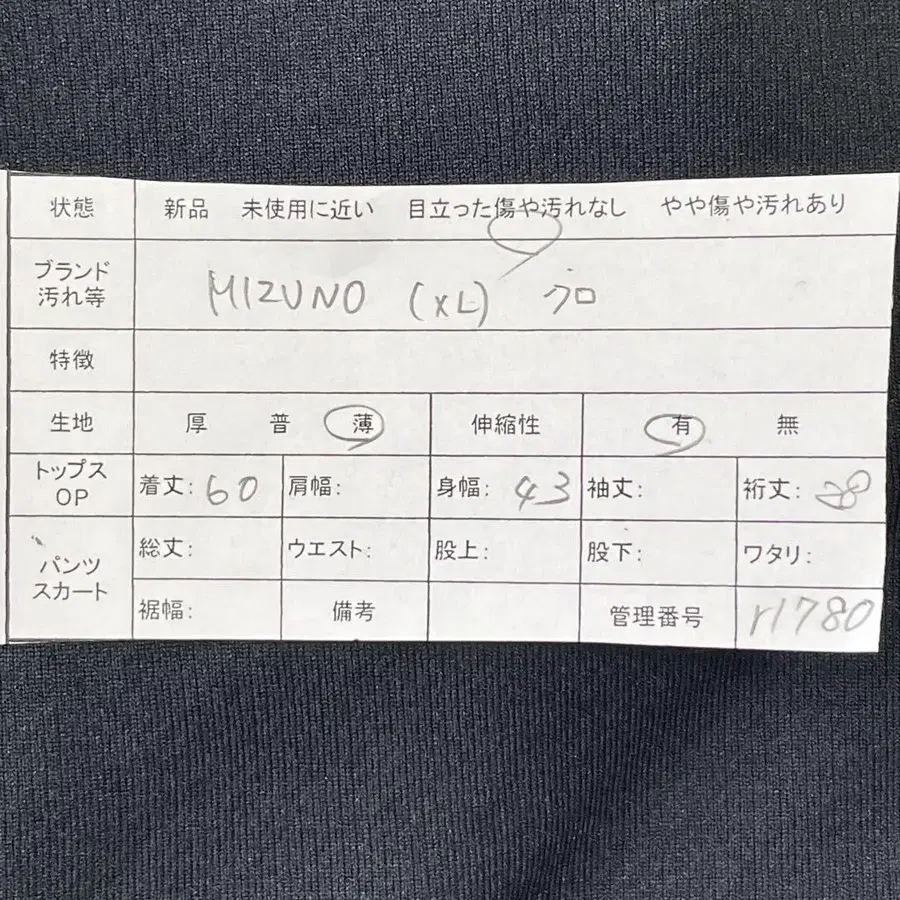 状態 新品 未使用に近い 目立った傷や汚れなし やや傷や汚れあり
ブランド
汚れ等
MIZUNO (XL) クロ
特徴
生地 厚 普 薄 伸縮性 有 無
トップス
OP
着丈: 60 肩幅: 身幅: 43 袖丈: 裄丈: 28
パンツ
スカート
総丈: ウエスト: 股上: 股下: ワタリ:
裾幅: 備考 管理番号 r1780